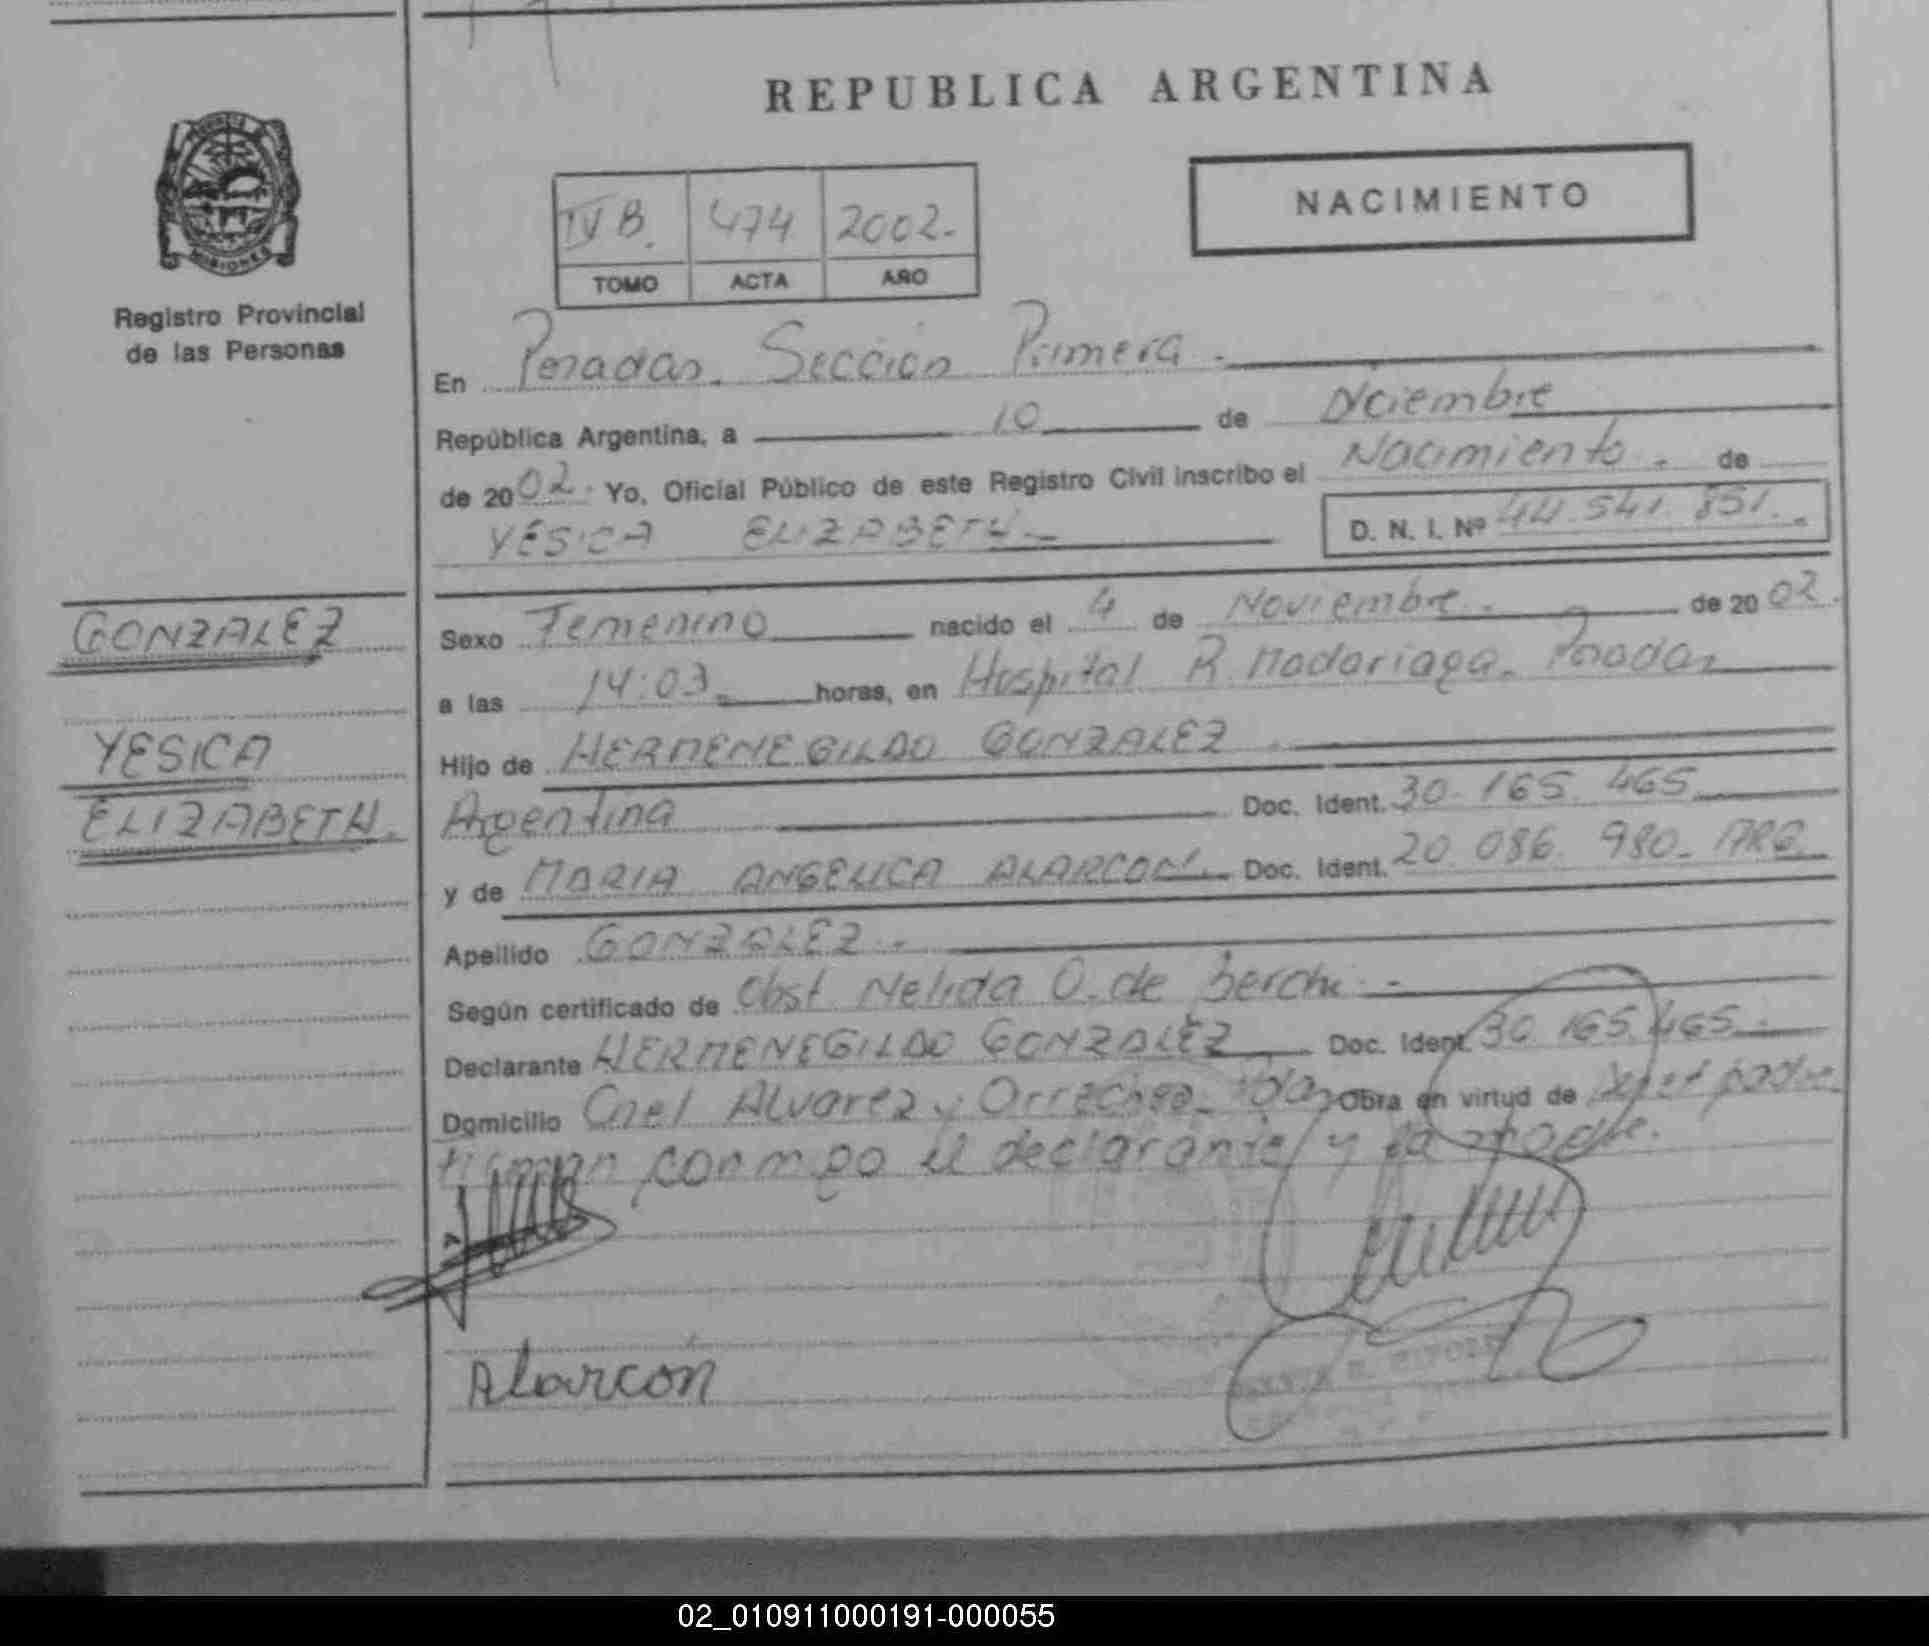 REPUBLICA ARGENTINA
NACIMIENTO
IV B. 474 2002.
TOMO ACTA AÑO
MISIONES
Registro Provincial
de las Personas
En Posadas. Sección Primera.
República Argentina, a 10 de
de 2002. Yo, Oficial Público de este Registro Civil inscribo el Nacimiento. de
YESICA ELIZABETH D. N. I. Nº 44.541.851.
GONZALEZ
Sexo Femenino nacido el 4 de Noviembre. de 2002.
a las 14:03 horas, en Hospital R. Madariaga. Posadas
YESICA
Hijo de HERMENEGILDO GONZALEZ.
ELIZABETH.
Argentina Doc. Ident. 30.165.465
y de MARIA ANGELICA ALARCON. Doc. Ident. 20.086.980. ARG.
Apellido GONZALEZ.
Según certificado de Obst Nelida O. de
Declarante HERMENEGILDO GONZALEZ Doc. Ident. 30.165.465.
Domicilio Cnel Alvarez y Orrechea. Pdas Obra en virtud de padre
firman conmigo el declarante y la madre.
Alarcón
02_010911000191-000055